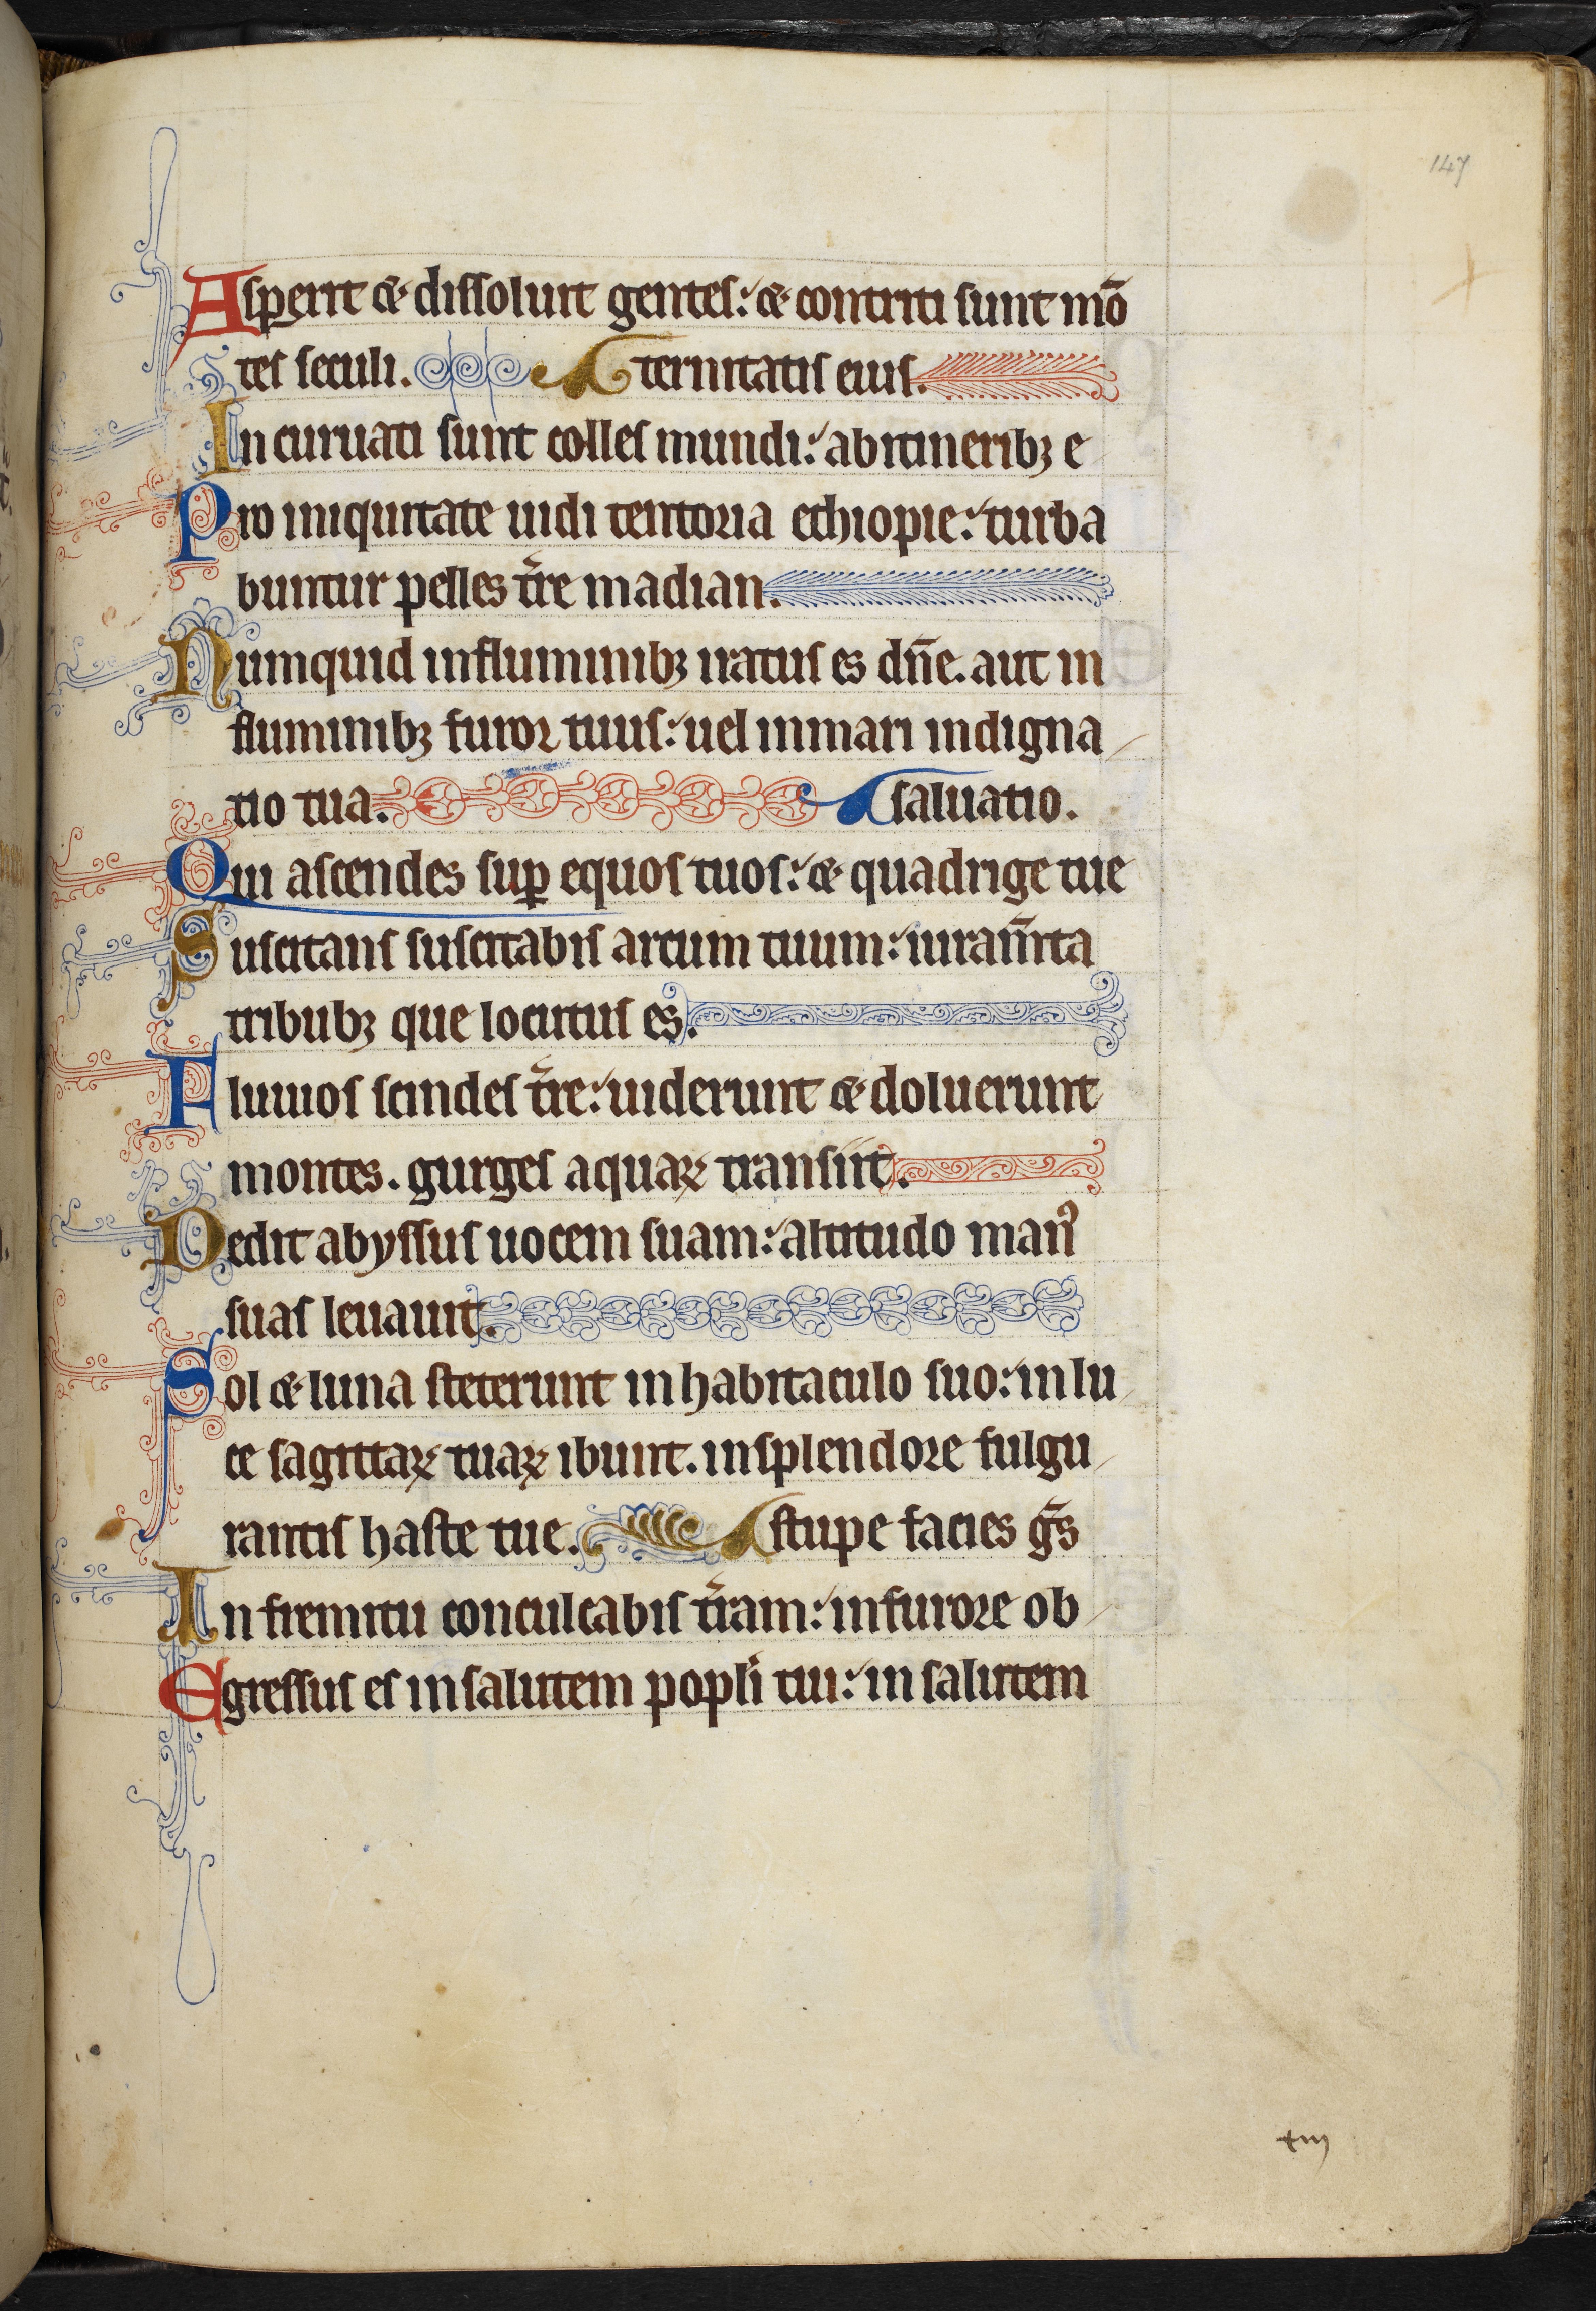 147
Asperit & dissoluit gentes: & contriti sunt mō
tes seculi. ternitatis eius.
Incuruati sunt colles mundi: abitineribꝫ e
Pro iniquitate uidi tentoria ethiopie: turba
buntur pelles t̄re madian.
Numquid influminibꝫ iratus es dn̄e. aut in
fluminibꝫ furor tuus: uel inmari indigna
tio tua. saluatio.
Qui ascendes suꝑ equos tuos: & quadrige tue
Suscitans suscitabis arcum tuum: iuram̄ta
tribubꝫ que locutus es.
Fluuios scindes t̄re: uiderunt & doluerunt
montes. gurges aquaꝝ transiit.
Dedit abyssus uocem suam: altitudo manꝰ
suas leuauit.
Sol & luna steterunt inhabitaculo suo: inlu
ce sagittaꝝ tuaꝝ ibunt. insplendore fulgu
rantis haste tue. stupefacies ḡs
In fremitu conculcabis t̄ram: infurore ob
Egressus es insalutem popl̄i tui: in salutem